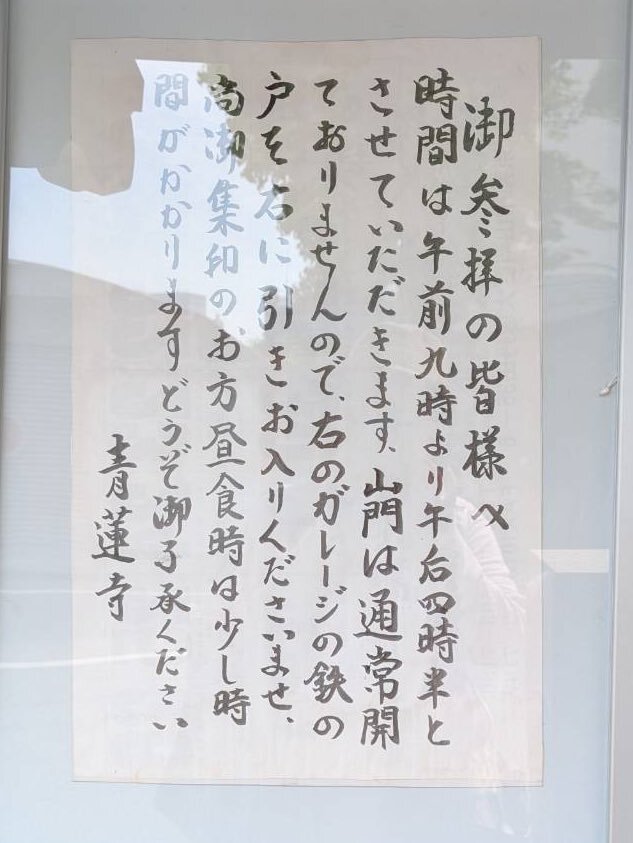 御参拝の皆様へ
時間は午前九時より午后四時半と
させていただきます、山門は通常開
ておりませんので、右のガレージの鉄の
戸を右に引きお入りくださいませ、
尚御集印のお方昼食時は少し時
間がかかりますどうぞ御了承ください
青蓮寺